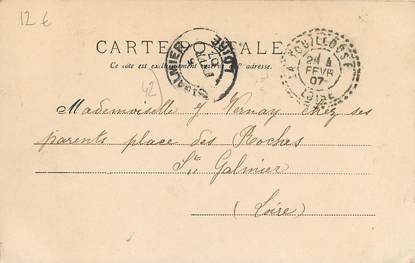 12 €
CARTE POSTALE
Ce côté est exclusivement réservé à l'adresse
ST GALMIER
5
FEVR
07
LOIRE
LA FOUILLOUSE
4
FEVR
07
LOIRE
42
Mademoiselle J Vernay chez ses
parents place des Roches
St Galmier
(Loire)